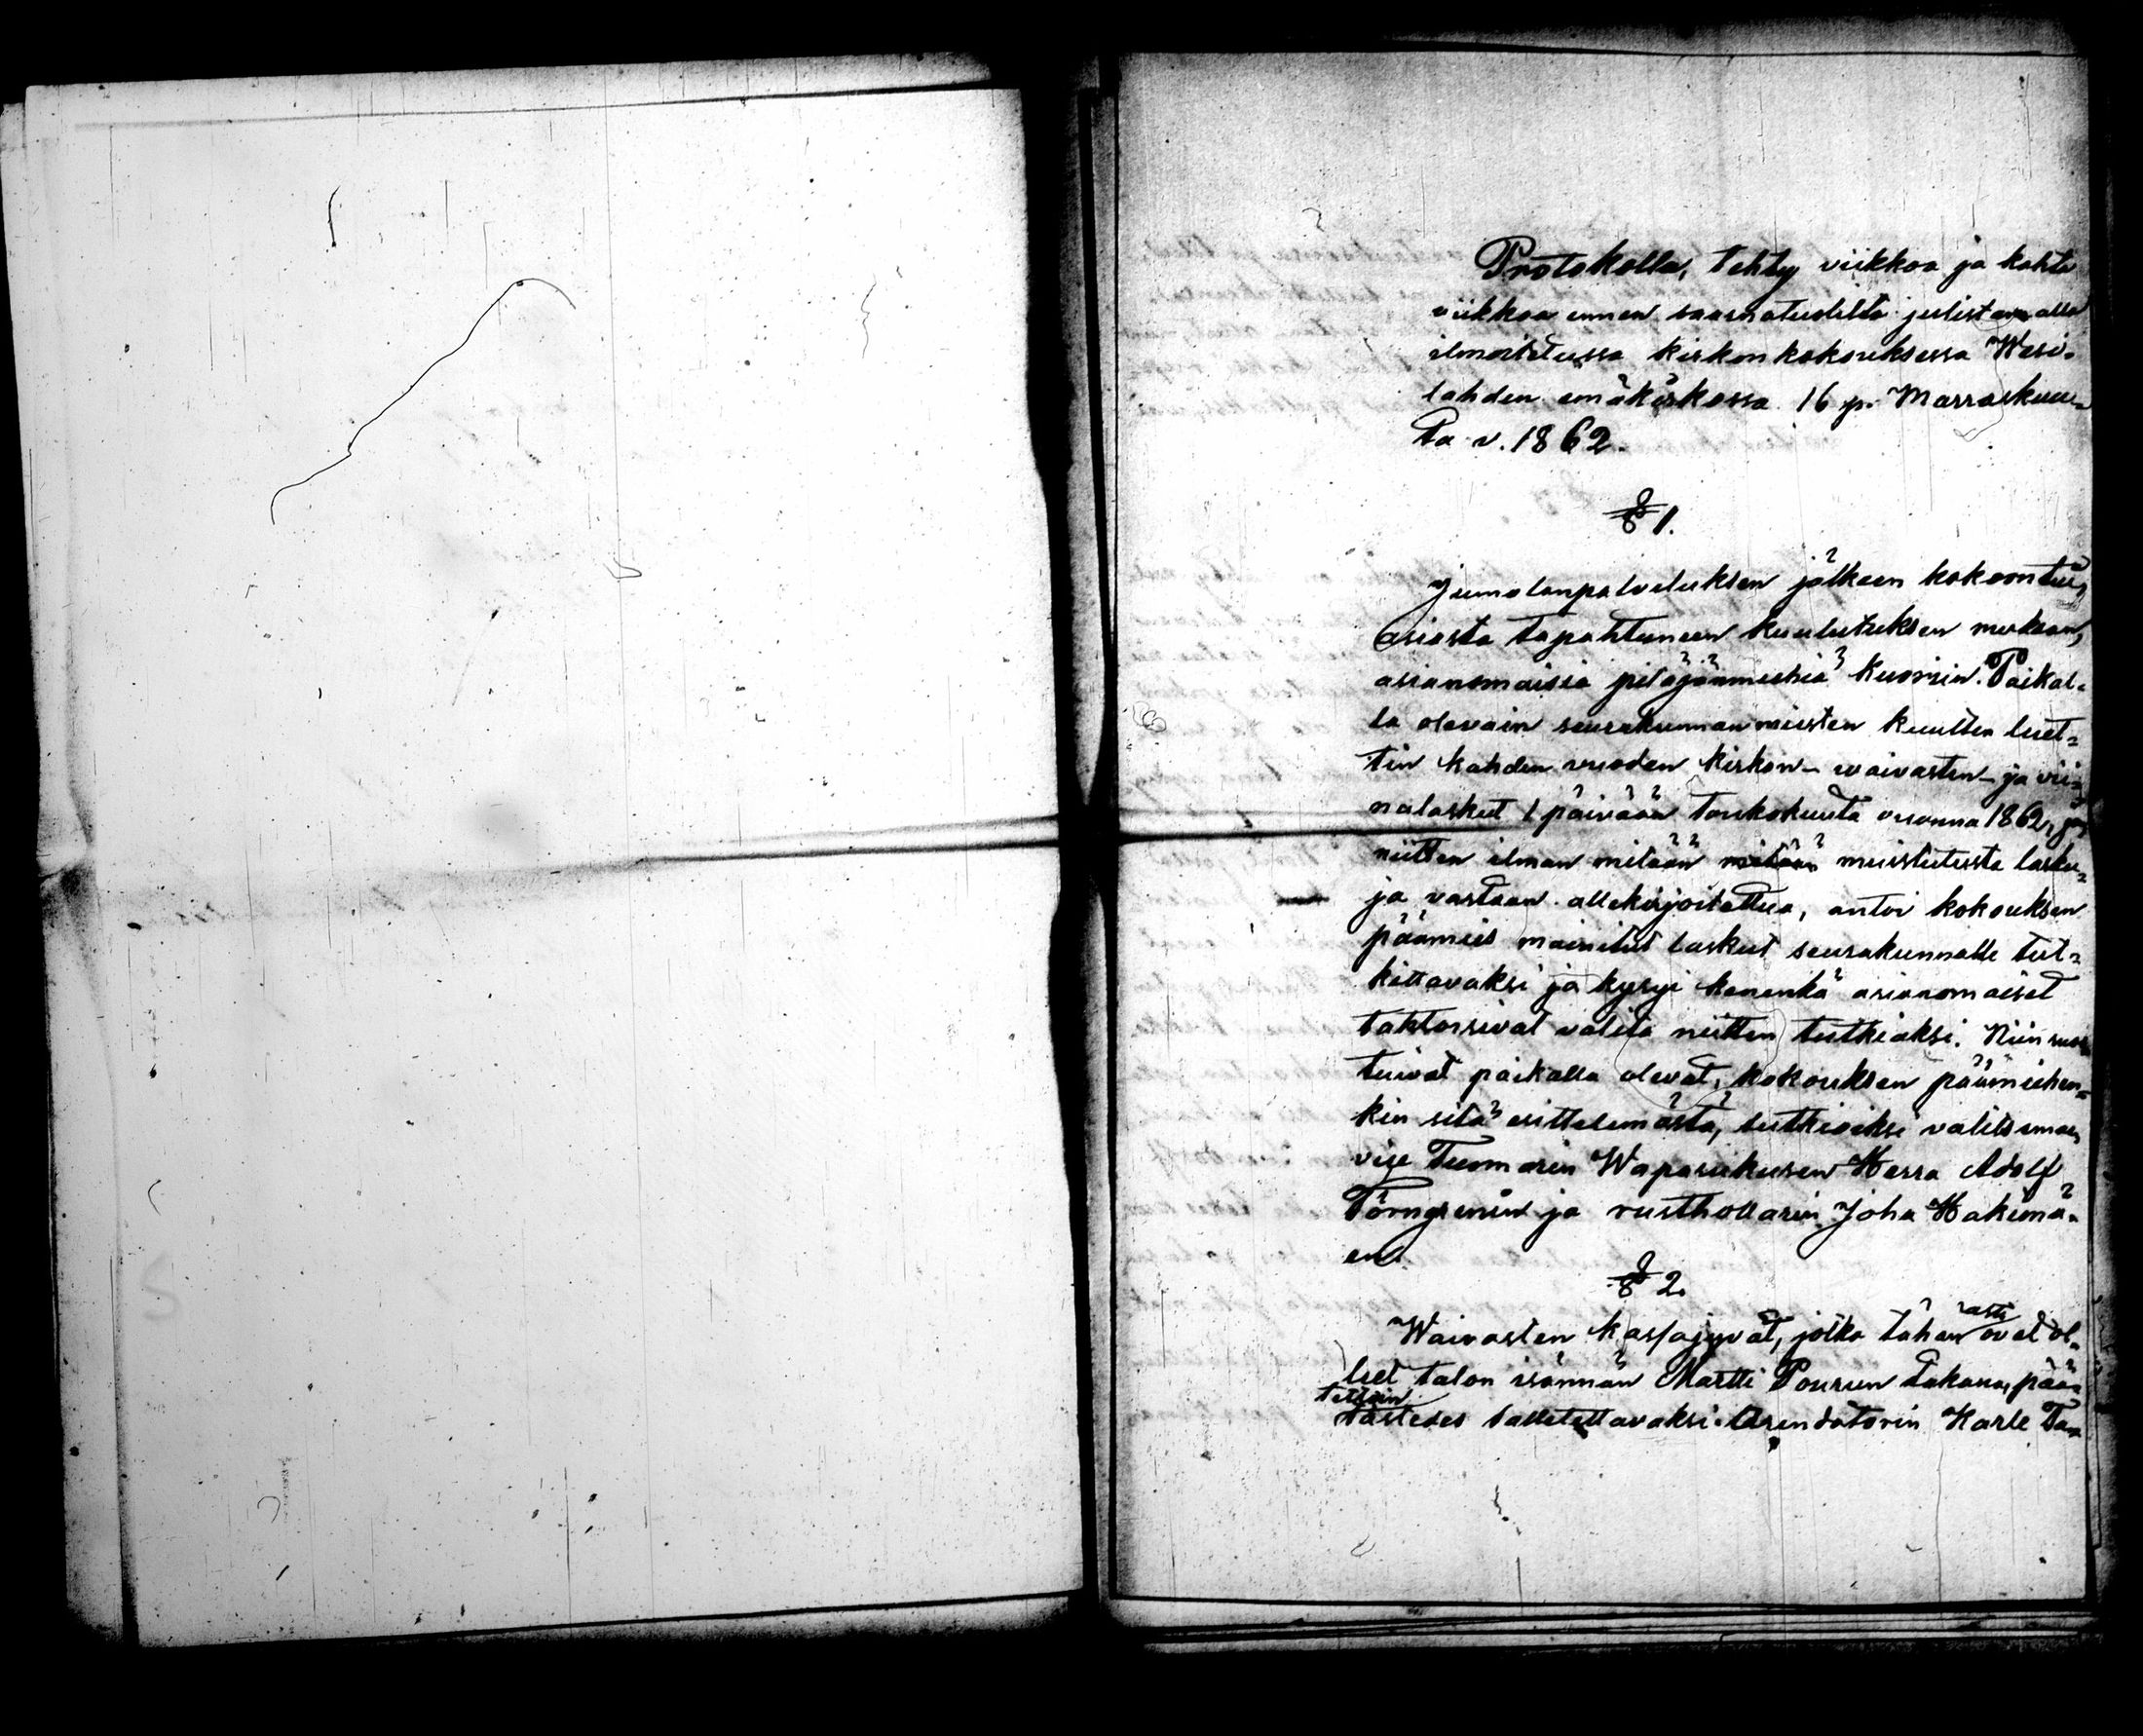 Protokolla, tehty viikkoa ja kahta
viikkoa ennen saarnatuolilta julistamalla
ilmoitetussa kirkonkokouksessa Wesi-
lahden emäkirkossa 16 p. Marraskuu-
ta v. 1862.
§ 1.
Jumalanpalveluksen jälkeen kokoontui,
asiasta tapahtuneen kuulutuksen mukaan,
asianomaisia pitäjänmiehiä kuoriin. Paikal-
la olevain seurakunnan miesten kuullen luet-
tin kahden vuoden kirkon- waivasten- ja vii-
nalaskut 1 päivään toukokuuta vuonna 1862, ja
niitten ilman mitään mitään muistutusta lasku-
ja vastaan allekirjoitettua, antoi kokouksen
päämies mainitut laskut seurakunnalle tut-
kittavaksi ja kysyi kenenkä asianomaiset
tahtoisivat valita niitten tutkiaksi. Niin suos-
tuivat paikalla olevat, kokouksen päämiehen-
kin sitä esittelemästä, tutkioiksi valitsemaan
vise Tuomarin Wapasukusen Herra Adolf
Törngrenin ja rusthollarin Joha Hakemä-
en.
§ 2.
Waivasten kassajyvät, jotka tähän asti ovat ol-
leet talon isännän Martti Pourun takana, pää-
tettiin
tästedes talletettavaksi Arendatorin Karle Ta-